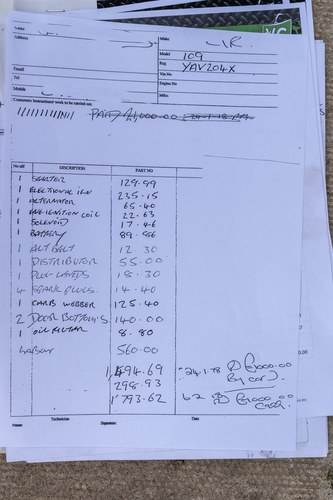 Name
Address
Make L.R.
Model 109
Reg YAV204X
Email
Vin No
Tel
Engine No
Mobile
Miles
Customers Instructions/ work to be carried out
PAID £1,000.00
No off DESCRIPTION PART NO
1 STARTER 129.99
1 ELECTRONIC IGN 235.15
1 ALTERNATOR 65.40
1 IGNITION COIL 22.63
1 SOLENOID 17.46
1 BATTERY 89.86
1 ALT BELT 12.30
1 DISTRIBUTOR 55.00
1 PLUG LEADS 18.30
4 SPARK PLUGS 14.40
1 CARB WEBBER 125.40
2 DOOR BOTTOMS 140.00
1 OIL FILTER 8.80
Labour 560.00
1,494.69 24.1.18 PD £1000.00
By card.
298.93
1793.62 6.2 PD £1000.00
Cash.
Technician Time
Name Signature